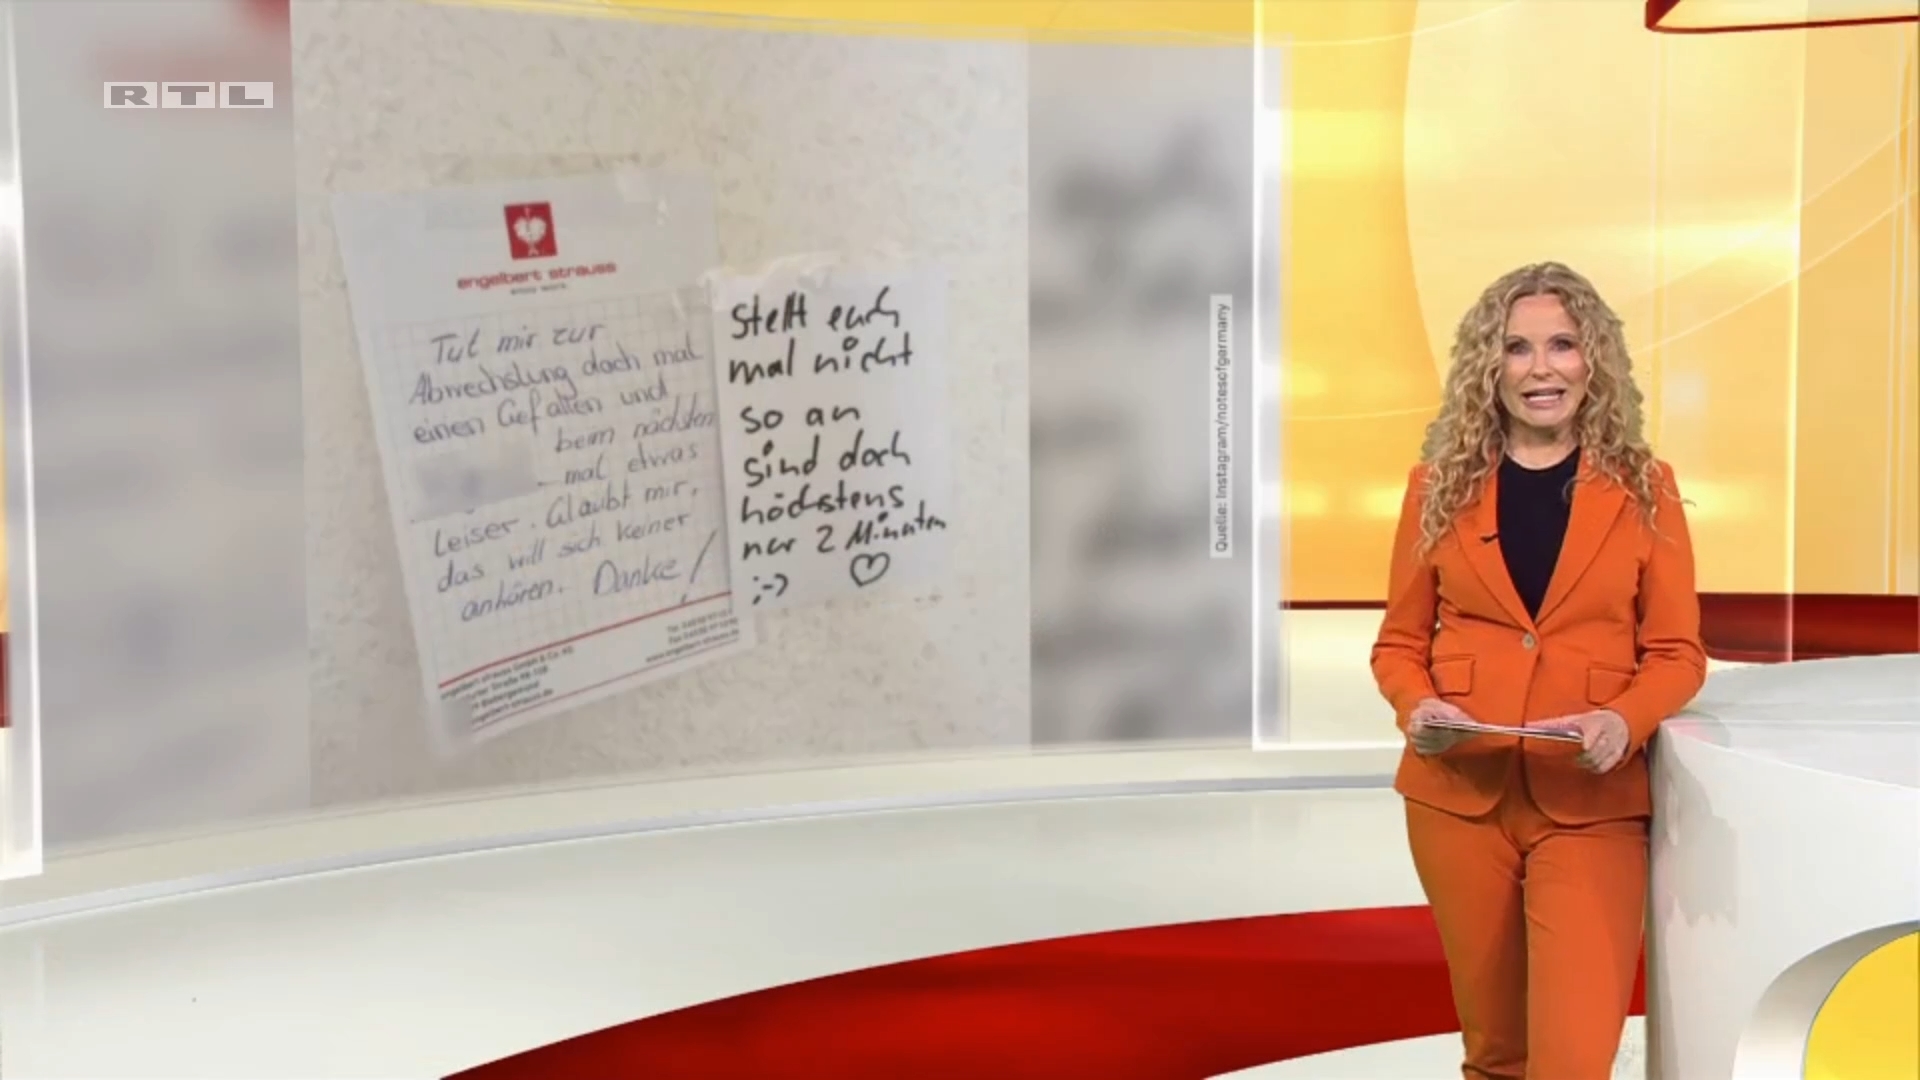 RTL
engelbert strauss
enjoy work.
Tut mir zur
Abwechslung doch mal
einen Gefallen und
beim nächsten
mal etwas
Leiser. Glaubt mir,
das will sich keiner
anhören. Danke!
engelbert strauss GmbH & Co. KG
Stellt euch
mal nicht
so an
sind doch
höchstens
nur 2 Minuten
;-) ♡
Quelle: Instagram/notesofgermany